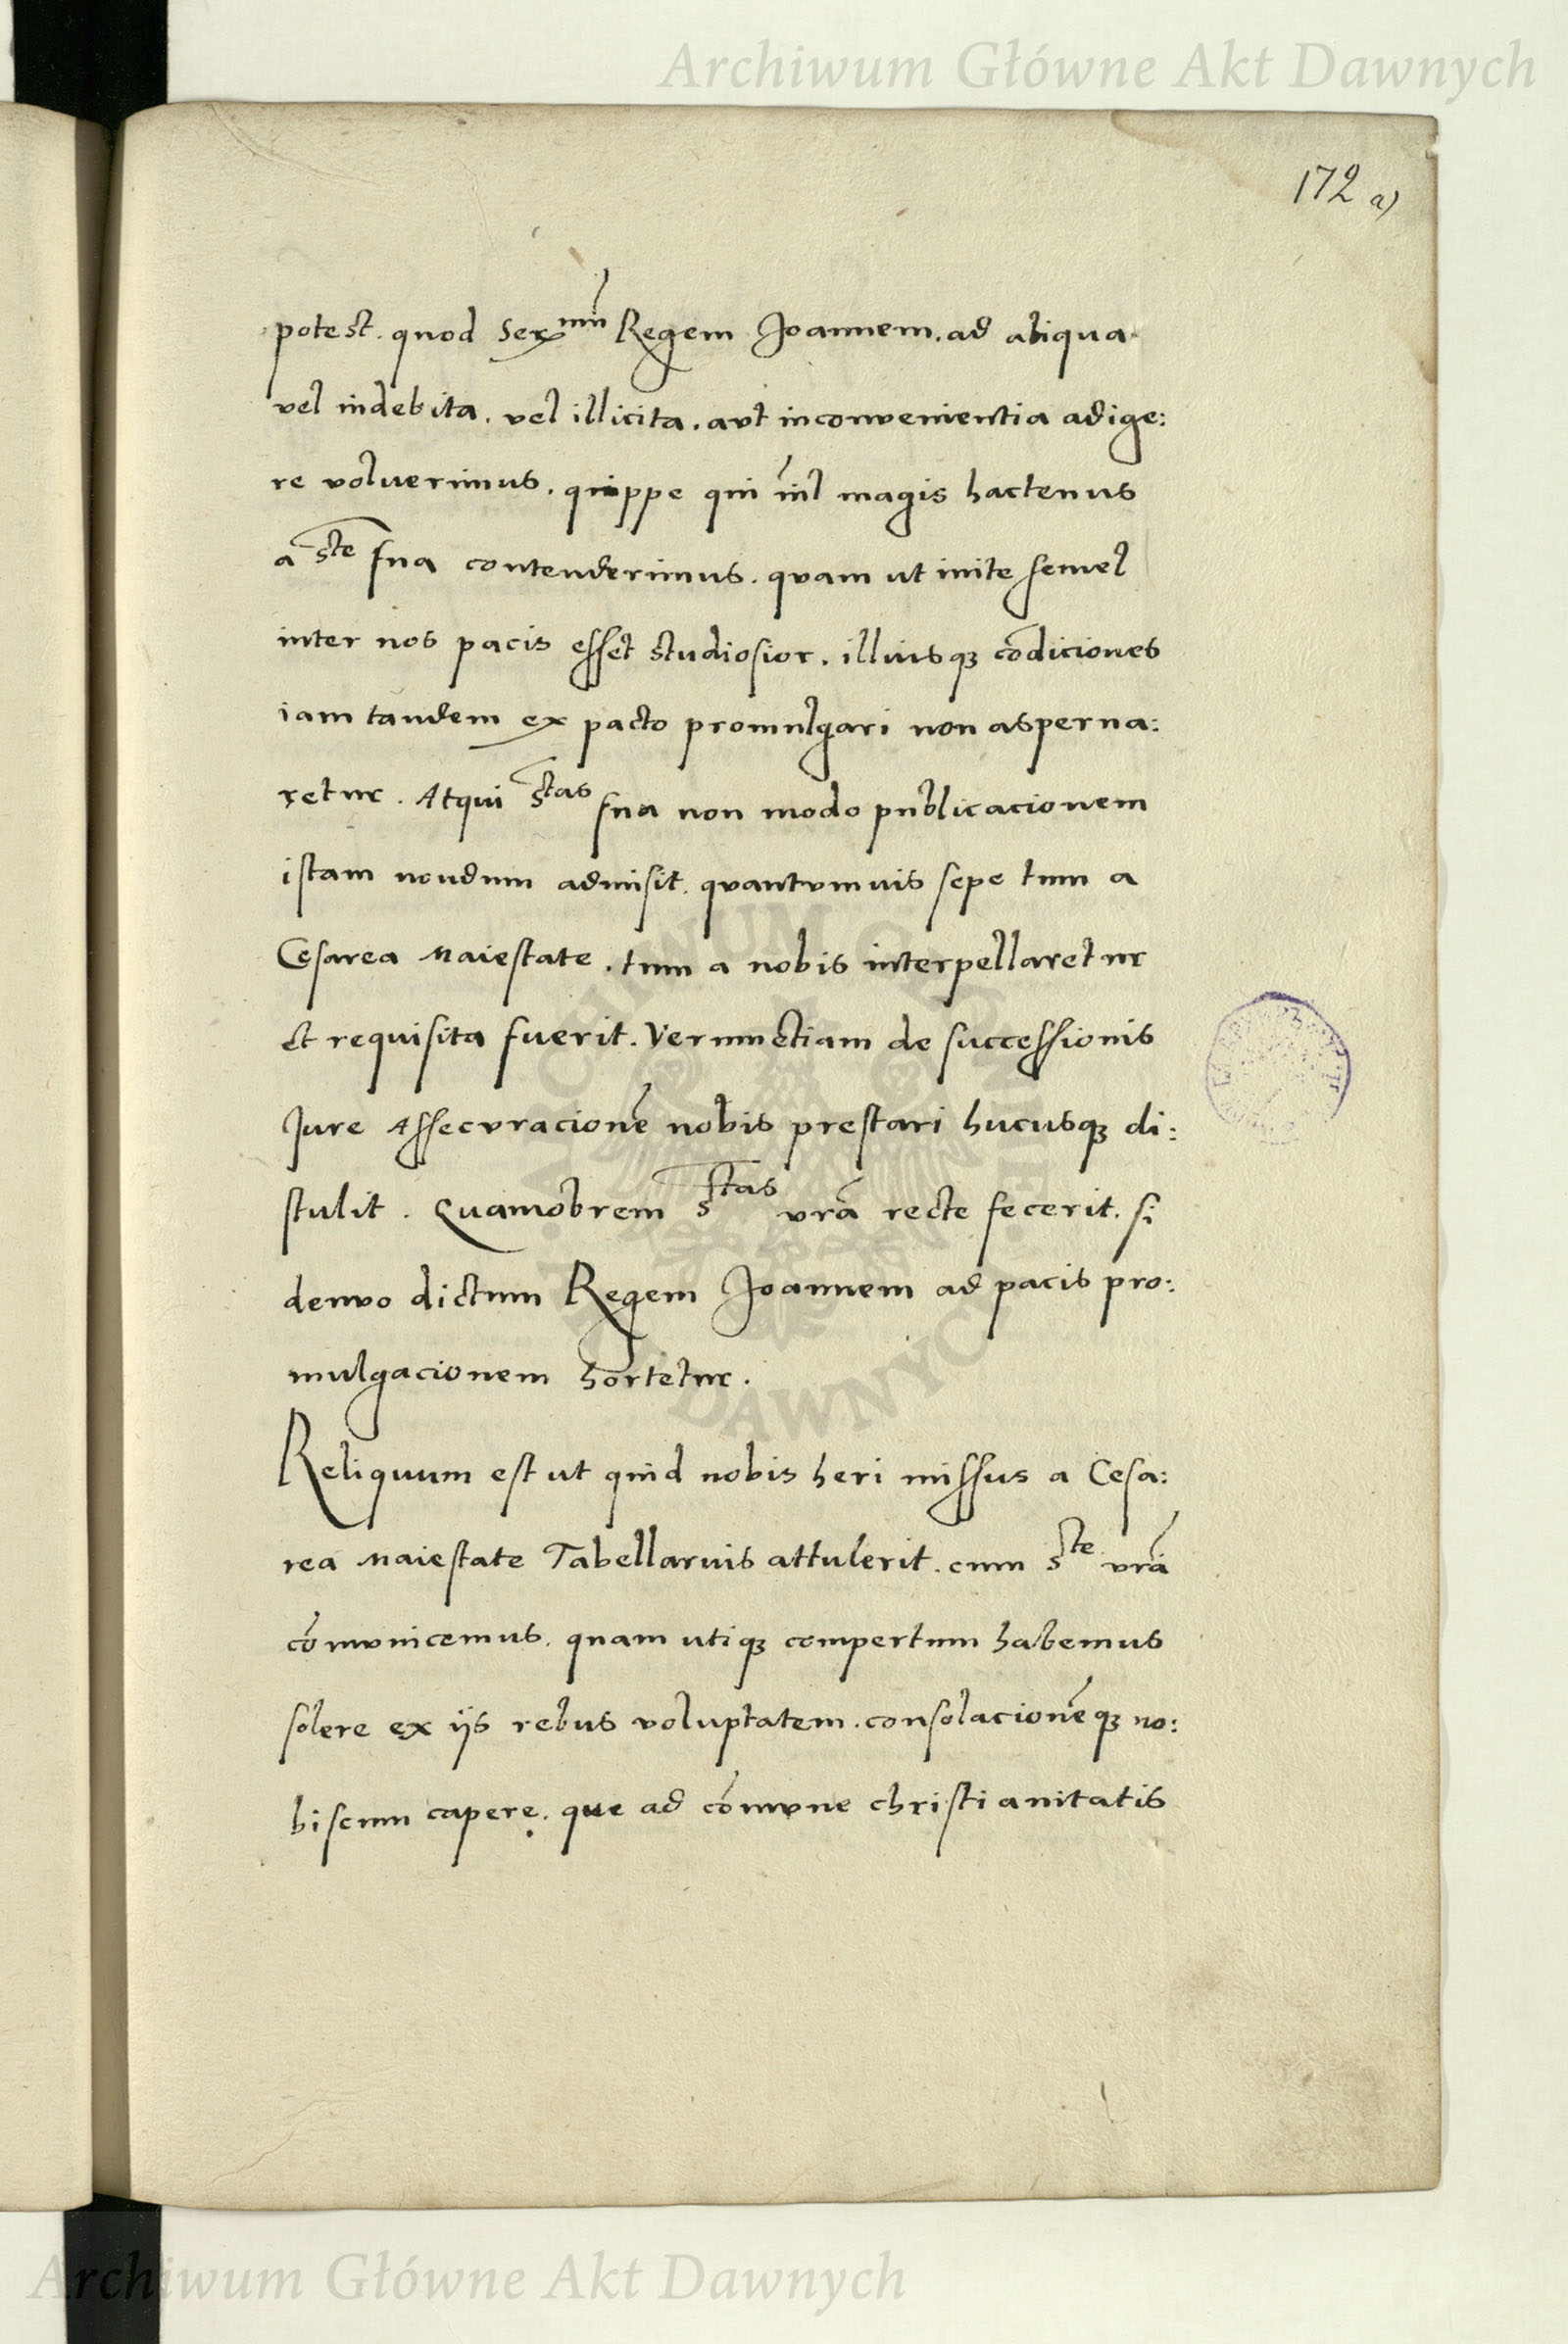 Archiwum Główne Akt Dawnych
172 a)
potest. quod Serᵐᵐ Regem Joannem. ad aliqua
vel indebita. vel illicita. aut inconvenientia adige:
re voluerimus. quippe qui nil magis hactenus
a Sᵗᵉ sua contenderimus. quam ut inite semel
inter nos pacis esset studiosior. illiusqꝫ cōdiciones
iam tandem ex pacto promulgari non asperna:
retur. Atqui Sᵗᵃˢ sua non modo publicacionem
istam nondum admisit. quantumvis sepe tum a
Cesarea Maiestate. tum a nobis interpellaretur
et requisita fuerit. Verumetiam de successionis
Jure Assecuracionē nobis prestari hucusqꝫ di:
stulit. Quamobrem Sᵗᵃˢ vrā recte fecerit. si
denuo dictum Regem Joannem ad pacis pro:
mulgacionem hortetur.
Reliquum est ut quid nobis heri missus a Cesa:
rea Maiestate Tabellarius attulerit. cum Sᵗᵉ vrā
cōmunicemus. quam utiqꝫ compertum habemus
solere ex ijs rebus voluptatem. consolacionēqꝫ no:
biscum capere. que ad cōmune christianitatis
ARCHIWUM GŁÓWNE AKT DAWNYCH
Archiwum Główne Akt Dawnych